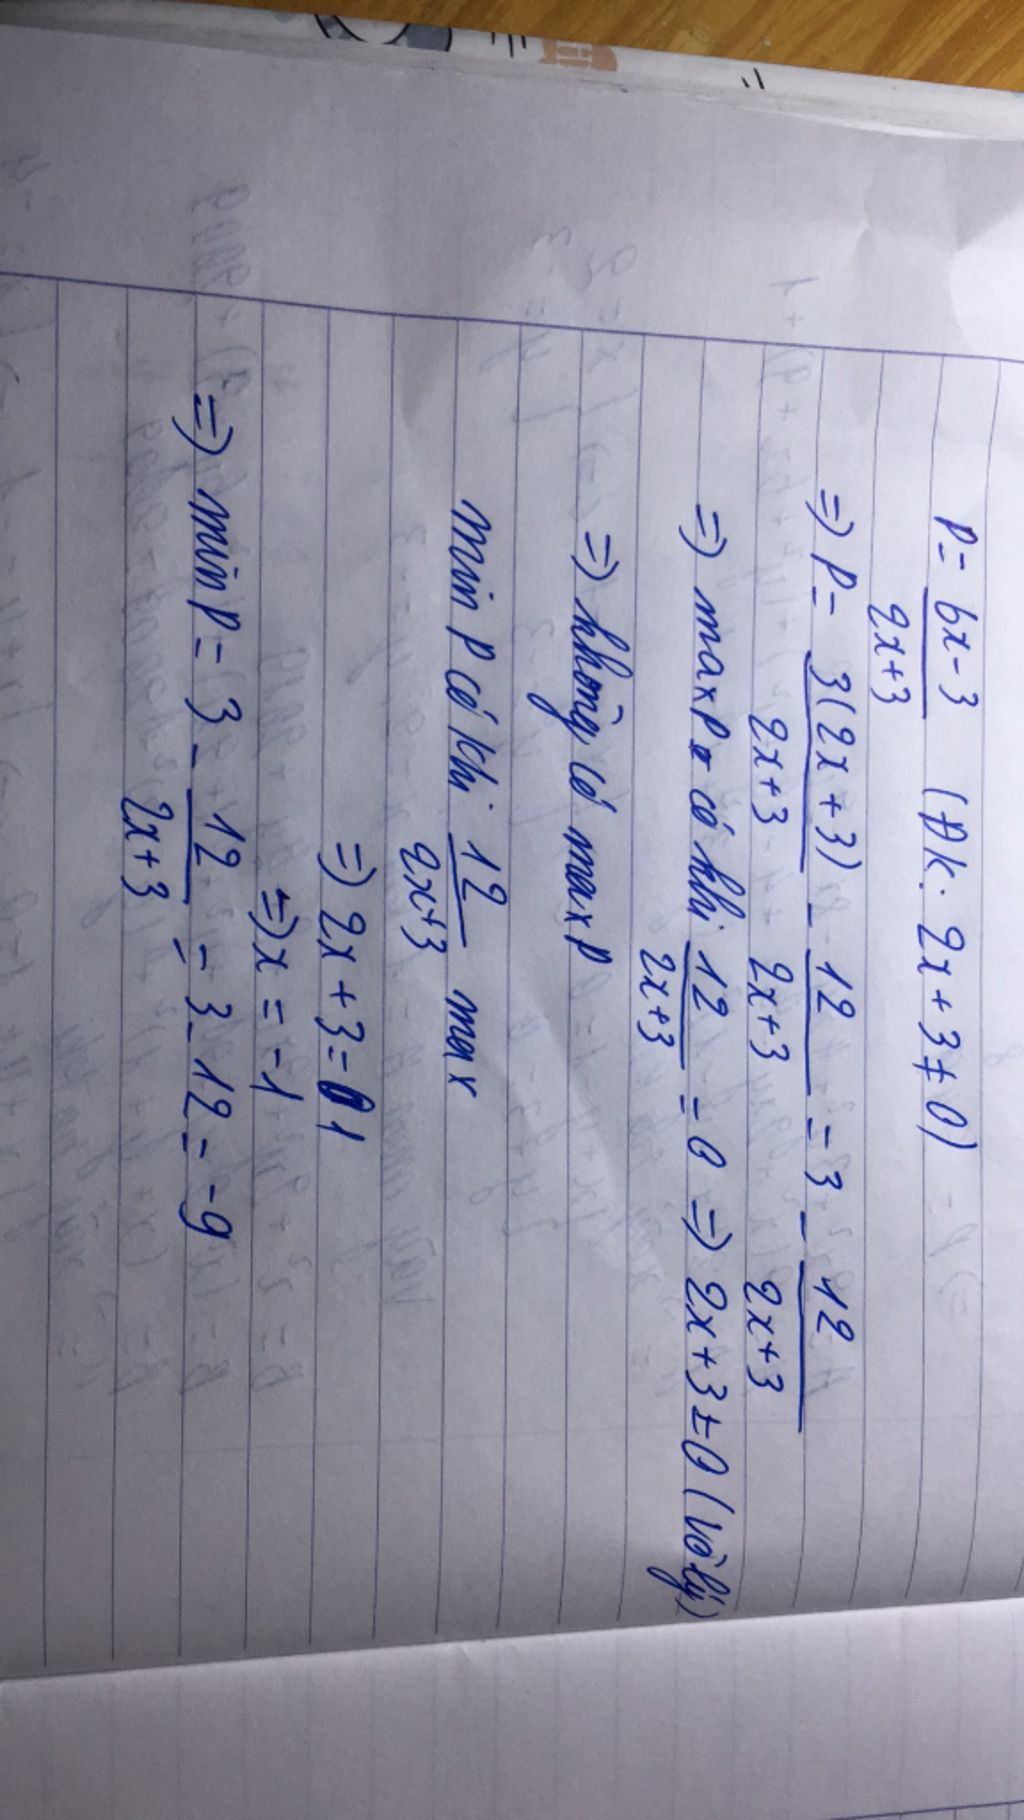 P = 6x - 3 / 2x + 3 (ĐK: 2x + 3 ≠ 0)
=) P = 3(2x + 3) / 2x + 3 - 12 / 2x + 3 = 3 - 12 / 2x + 3
=) max P có khi 12 / 2x + 3 = 0 =) 2x + 3 = 0 (vô lý)
=) không có max P
min P có khi 12 / 2x + 3 max
=) 2x + 3 = 1
=) x = -1
=) min P = 3 - 12 / 2x + 3 = 3 - 12 = -9